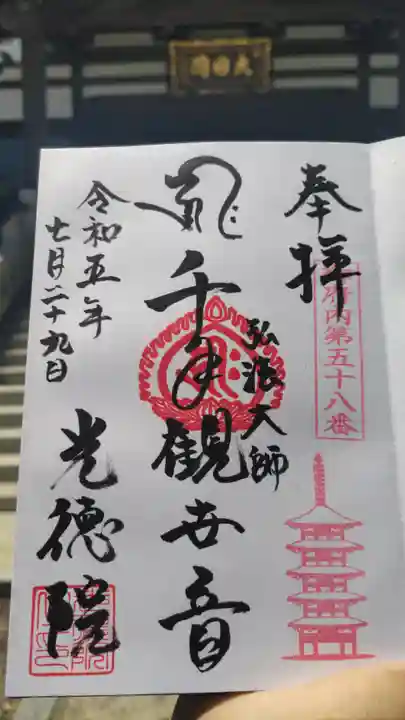 奉拝
府内第五十八番
弘法大師
千手観世音
令和五年
七月二十九日
光徳院